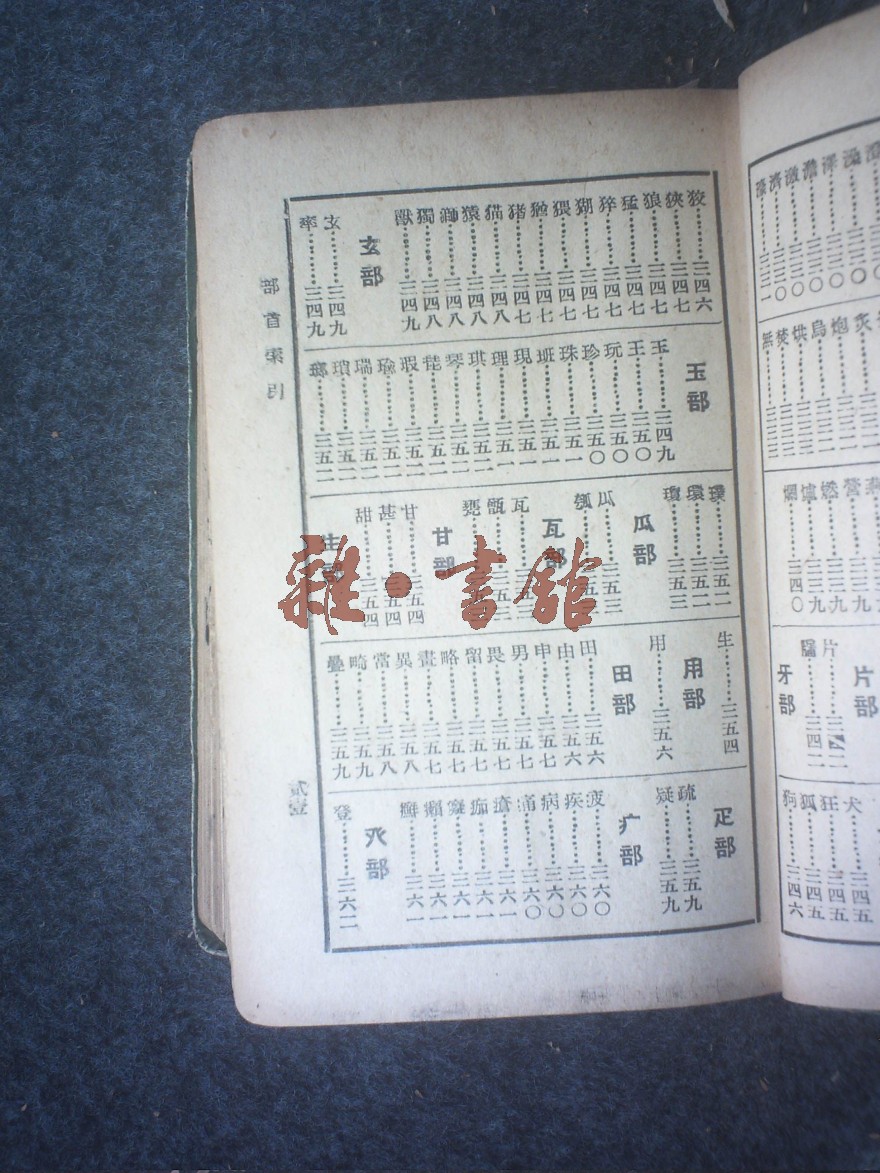 炙
炮
烏
烘
焚
無
營
燃
爛……三四〇
片部
片
牖……三四二
牙部
犬……三四五
狂……三四五
狐……三四五
狗……三四六
狡……三四六
狹……三四七
狼……三四七
猛……三四七
猝……三四七
猢……三四七
猥……三四七
猶……三四七
猪……三四七
猫……三四八
猿……三四八
獅……三四八
獨……三四八
獸……三四九
玄部
玄……三四九
率……三四九
玉部
玉……三四九
王……三五〇
玩……三五〇
珍……三五〇
珠……三五一
班……三五一
現……三五一
理……三五一
琪……三五二
琴……三五二
琵……三五二
瑕……三五二
瑜……三五二
瑞……三五二
瑣……三五二
瑯……三五二
璞……三五二
環……三五二
瓊……三五三
瓜部
瓜……三五三
瓠
瓦部
瓦……三五三
甑
甘部
甘……三五四
甚……三五四
甜……三五四
生部
生……三五四
用部
用……三五六
田部
田……三五六
由……三五六
申……三五七
男……三五七
畏……三五七
留……三五七
略……三五七
畫……三五七
異……三五八
當……三五八
畸……三五九
疊……三五九
疋部
疏……三五九
疑……三五九
疒部
疲……三六〇
疾……三六〇
病……三六〇
痛……三六〇
瘡……三六一
痴……三六一
癡……三六一
癩……三六一
癬……三六一
癶部
登……三六二
部首索引
貳壹
雜·書館